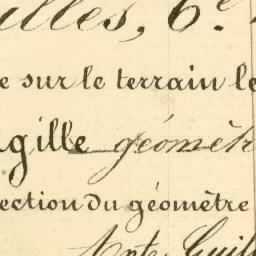 illes, 6.e
e sur le terrain le
gille géomèt
ection du géomètre
Ant. Guill